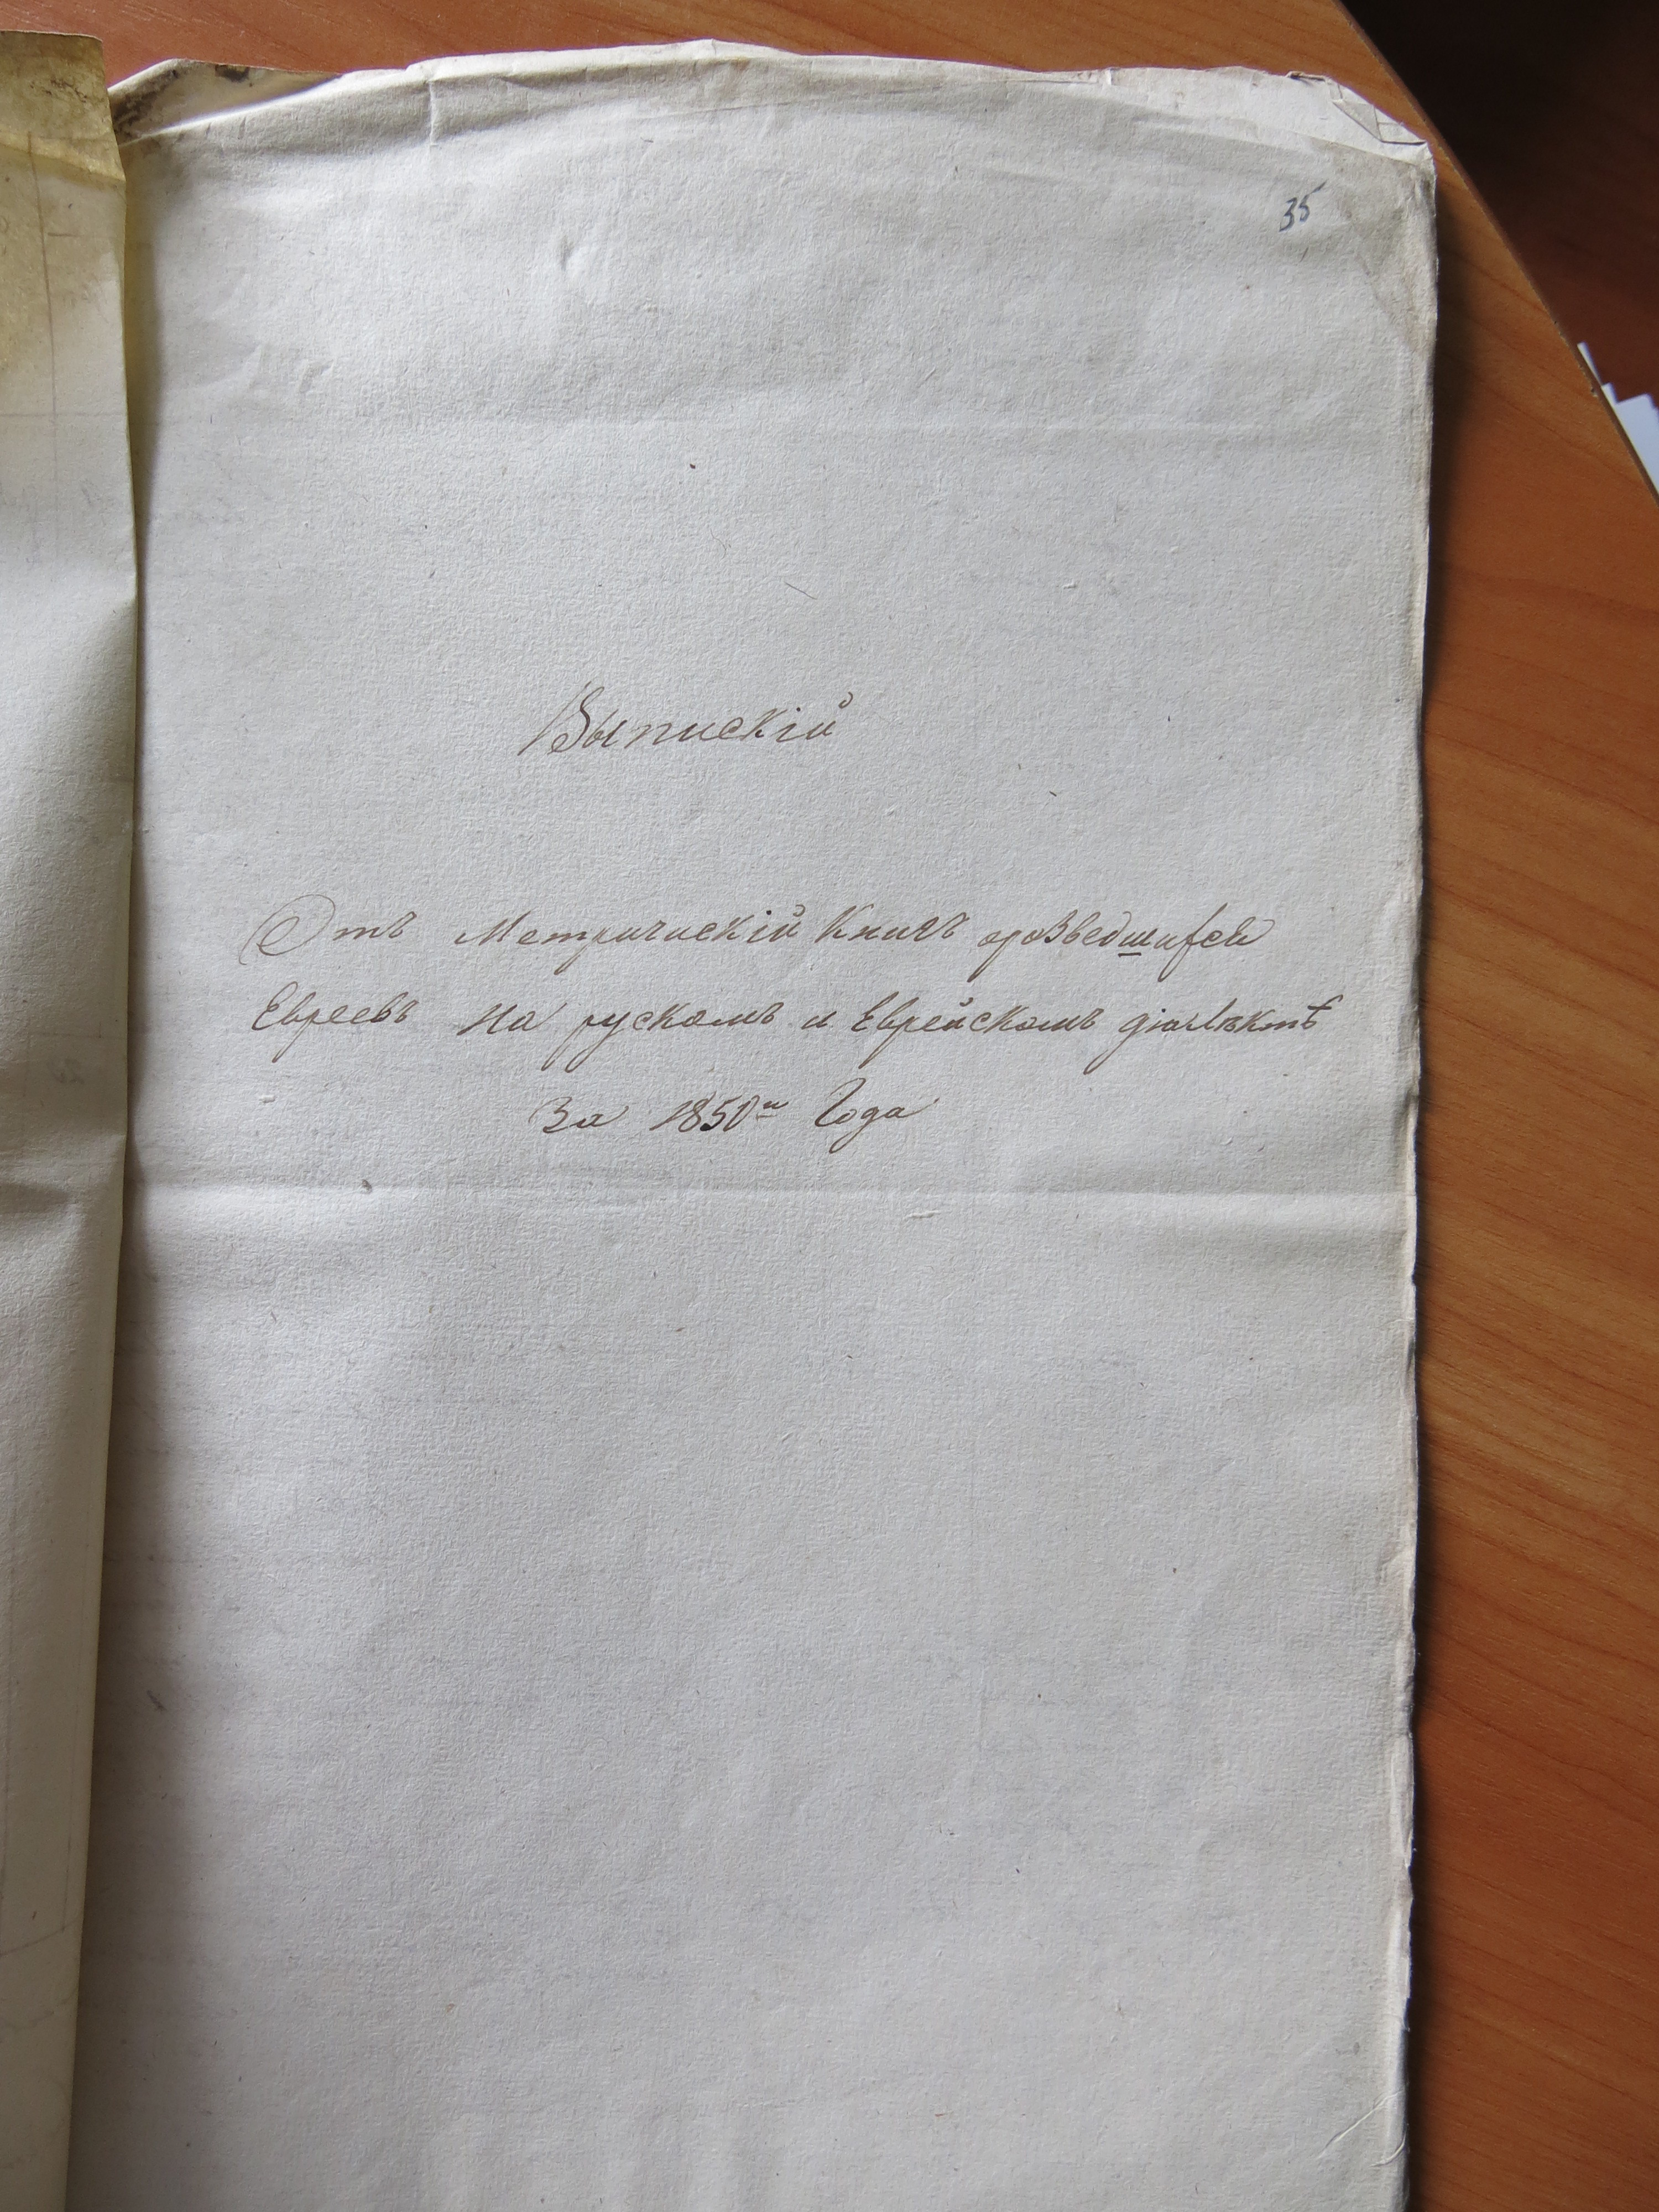 35
Выпискій
Отъ Метричискій Книгъ орозведшихся
Евреевъ на рускомъ и Еврейскомъ діалѣктѣ
За 1850й Года